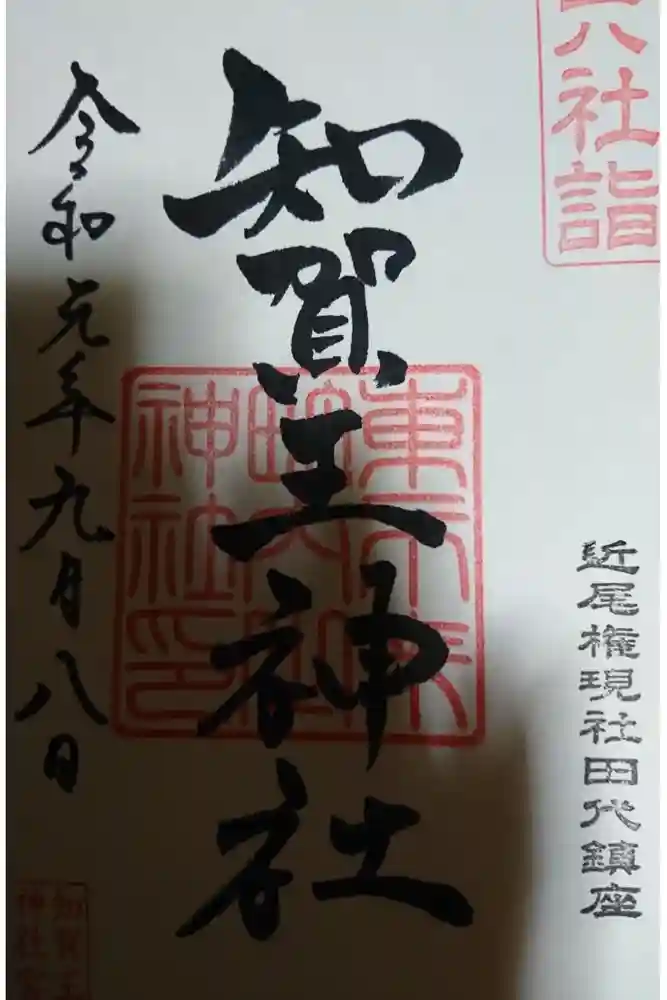 八社詣
近尾権現社田代鎮座
知賀王神社
令和元年九月八日
神社印
知賀王
神社